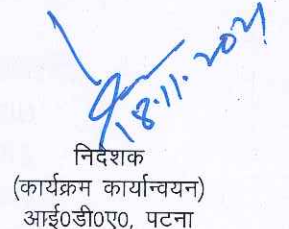 18.11.2021
निदेशक
(कार्यक्रम कार्यान्वयन)
आई0डी0ए0, पटना